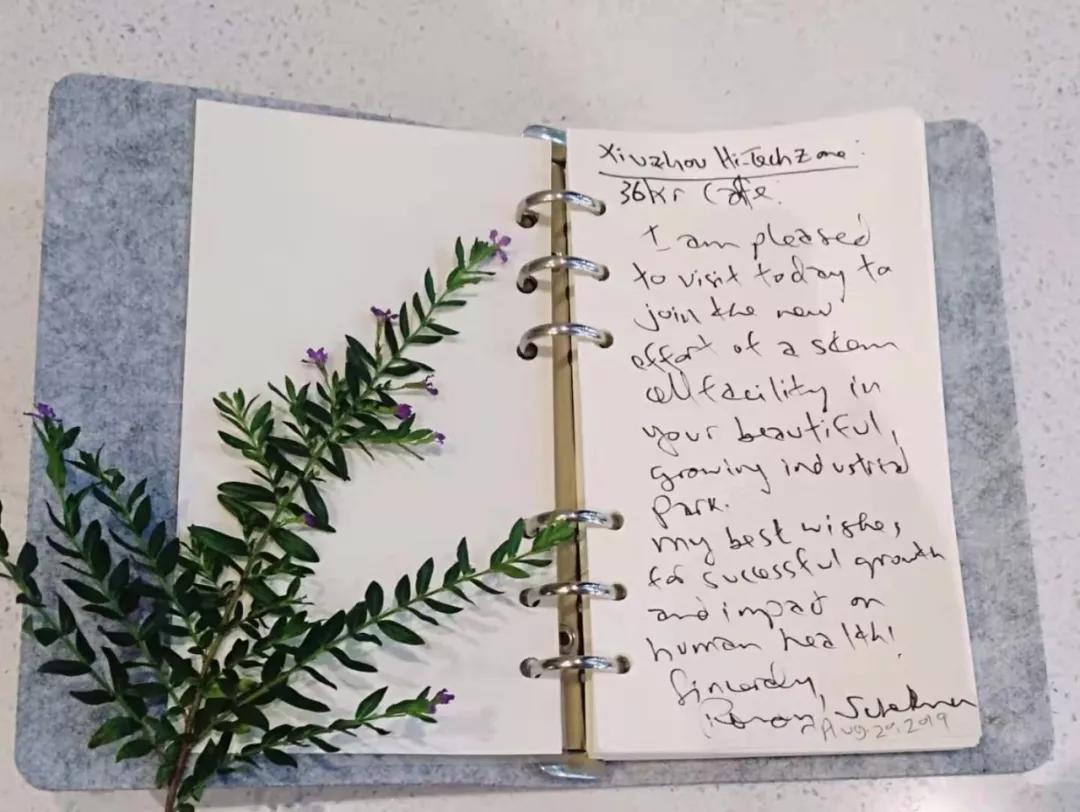 Xiuzhou Hi-Tech Zone:
36Kr Cafe.
I am pleased
to visit today to
join the new
effort of a stem
cell facility in
your beautiful,
growing industrial
park.
My best wishes
for successful growth
and impact on
human health!
Sincerely,
Aug. 20, 2019